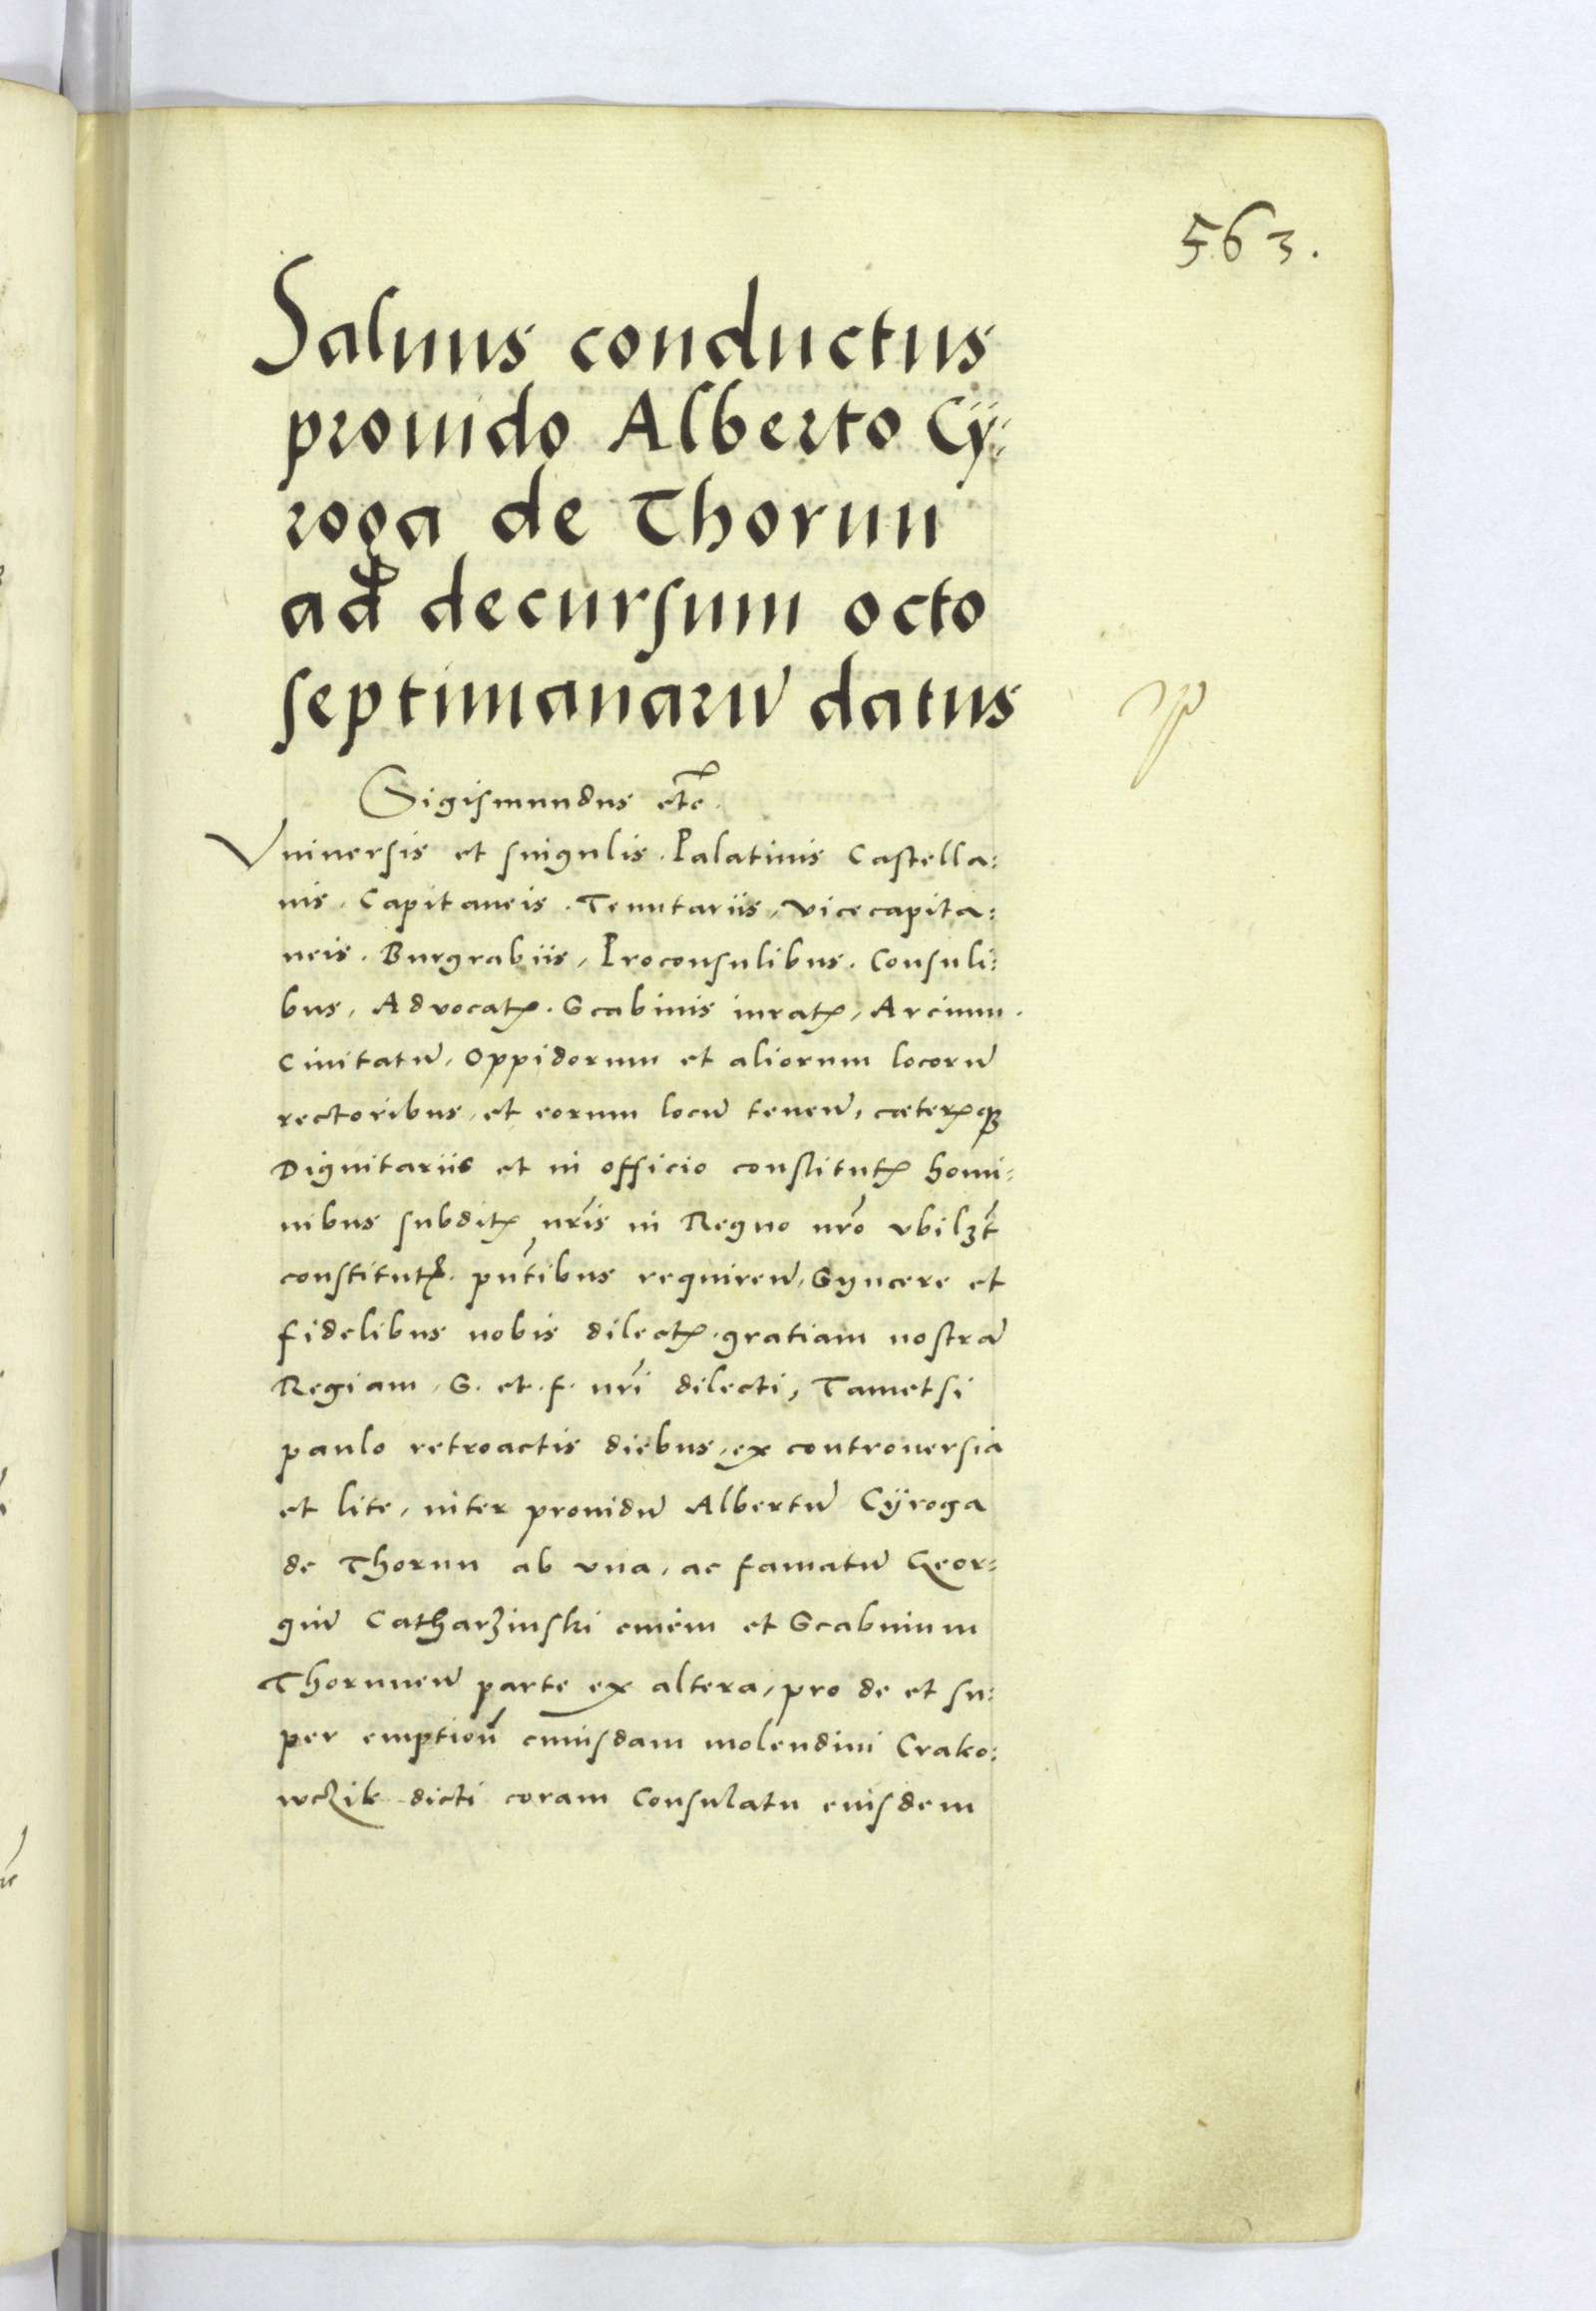 563.
Saluus conductus
prouido Alberto Cÿ-
roga de Thorun
ad decursum octo
septimanarū datus
Sigismundus etc̄.
Vniuersis et singulis. Palatinis Castella:
nis. Capitaneis. Tenutariis, vicecapita:
neis. Burgrabiis, Proconsulibus. Consuli:
bus, Aduocatꝭ. Scabinis iuratꝭ, Arcium.
Ciuitatū, Oppidorum et aliorum locorū
rectoribus, et eorum locū tenen̄, cæterꝭqꝫ
Dignitariis et in officio constitutꝭ homi:
nibus subditꝭ nr̄is in Regno nr̄o vbilꝫt
constitutꝭ. pn̄tibus requiren̄, Syncere et
fidelibus nobis dilectꝭ. gratiam nostrā
Regiam, S. et. f. nr̄i dilecti, Tametsi
paulo retroactis diebus, ex controuersia
et lite, inter prouidū Albertū Cÿroga
de Thorun ab vna, ac famatū Geor:
giū Catharzinski ciuem et Scabinum
Thorunen̄ parte ex altera, pro de et su:
per emption̄ cuiusdam molendini Crako:
wczik dicti coram Consulatu eiusdem